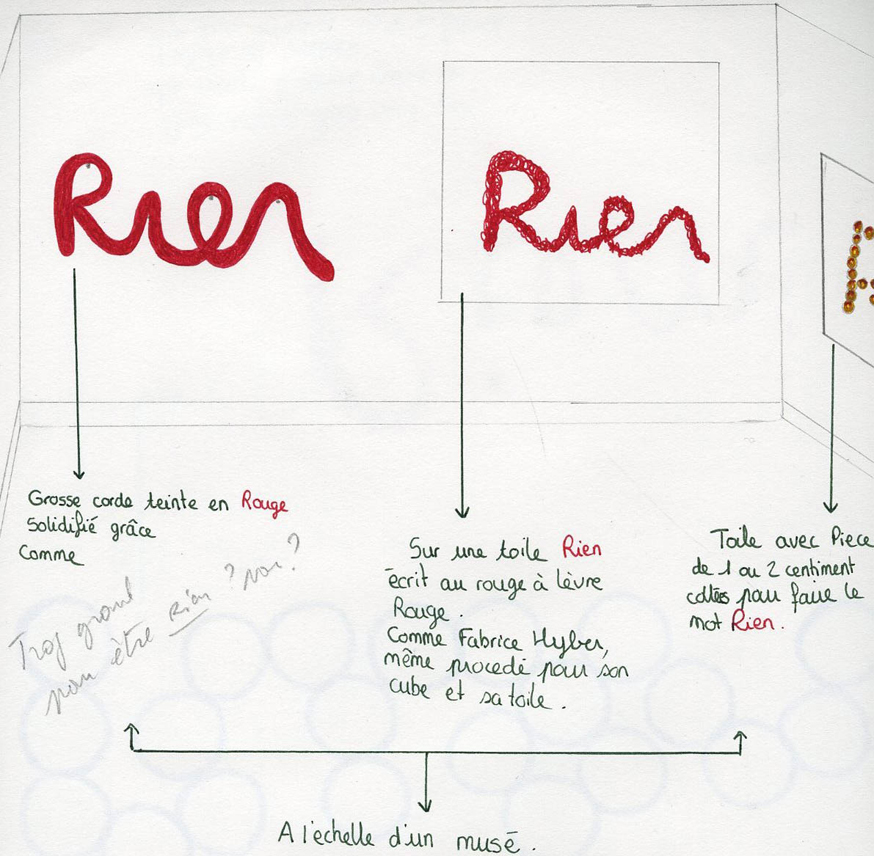 Rien
Rien
Grosse corde teinte en Rouge
Solidifié grâce
Comme
Trop grand
pour être Rien ? non ?
Sur une toile Rien
écrit au rouge à lèvre
Rouge.
Comme Fabrice Hyber,
même procedé pour son
cube et sa toile.
Toile avec Piece
de 1 ou 2 centiment
collées pour faire le
mot Rien.
A l'echelle d'un musé.